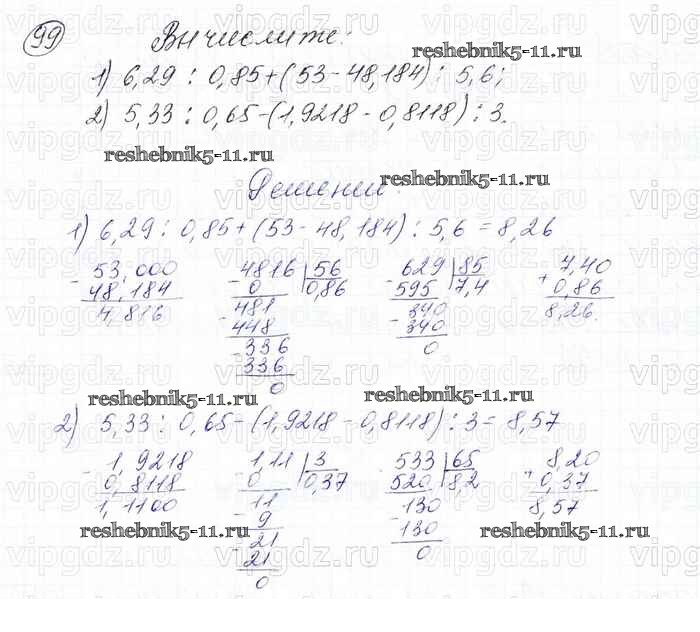 99 Вычислите:
reshebnik5-11.ru
1) 6,29 : 0,85+(53-48,184) : 5,6;
2) 5,33 : 0,65-(1,9218-0,8118) : 3.
reshebnik5-11.ru
reshebnik5-11.ru
Решение:
1) 6,29 : 0,85+(53-48,184) : 5,6=8,26
- 53,000 - 4816 | 56 - 629 | 85 + 7,40
48,184 0 0,86 595 7,4 0,86
4,816 - 481 - 340 8,26.
448 340
- 336 0
336
0
reshebnik5-11.ru
reshebnik5-11.ru
2) 5,33 : 0,65-(1,9218-0,8118) : 3=8,57
- 1,9218 - 1,11 | 3 - 533 | 65 + 8,20
0,8118 0 0,37 520 8,2 0,37
1,1100 - 11 - 130 8,57
9 130
- 21 0
21
0
reshebnik5-11.ru
reshebnik5-11.ru
vipgdz.ru